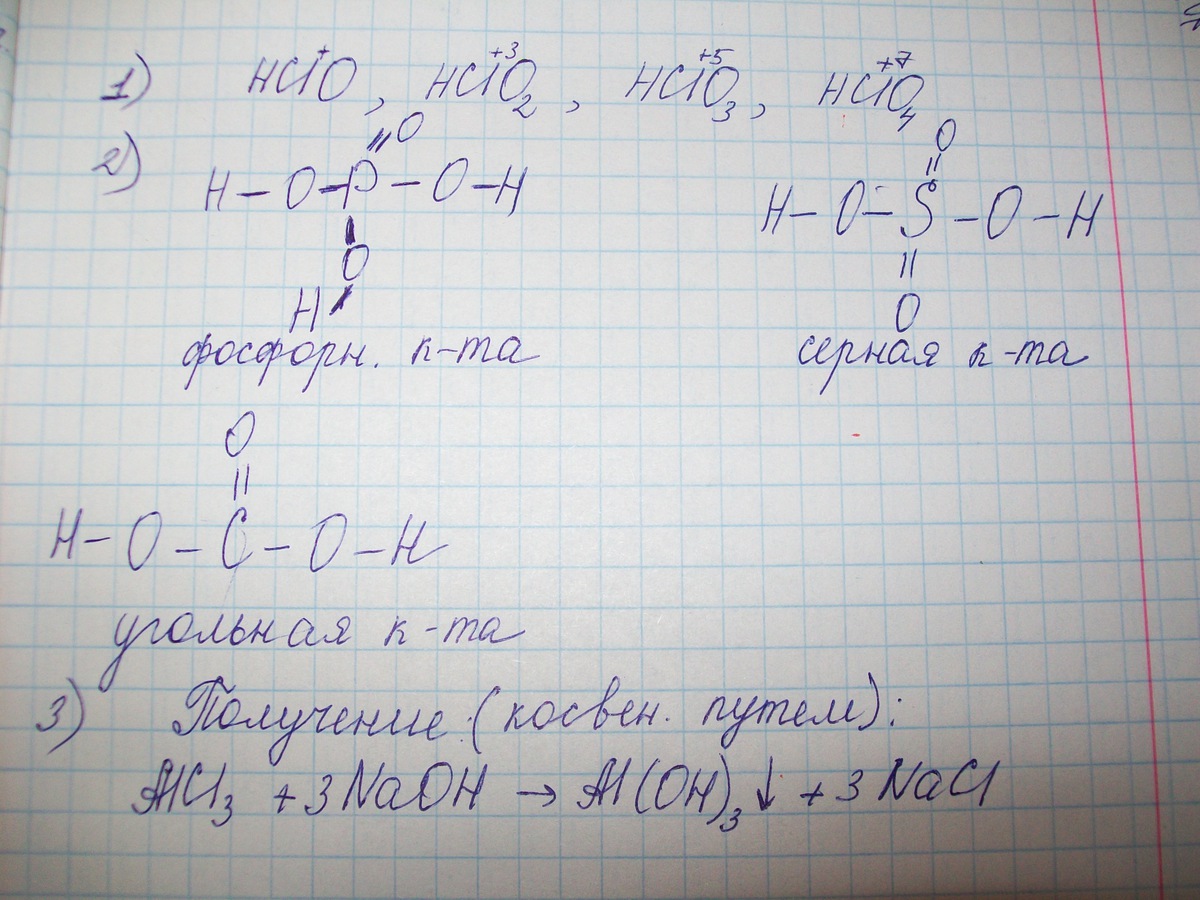 1) HCl⁺O, HCl⁺³O₂, HCl⁺⁵O₃, HCl⁺⁷O₄
2)
O
H – O – P – O – H
O
H
фосфорн. к-та
O
H – O – S – O – H
O
серная к-та
O
H – O – C – O – H
угольная к-та
3) Получение (косвен. путем):
AlCl₃ + 3NaOH → Al(OH)₃↓ + 3NaCl